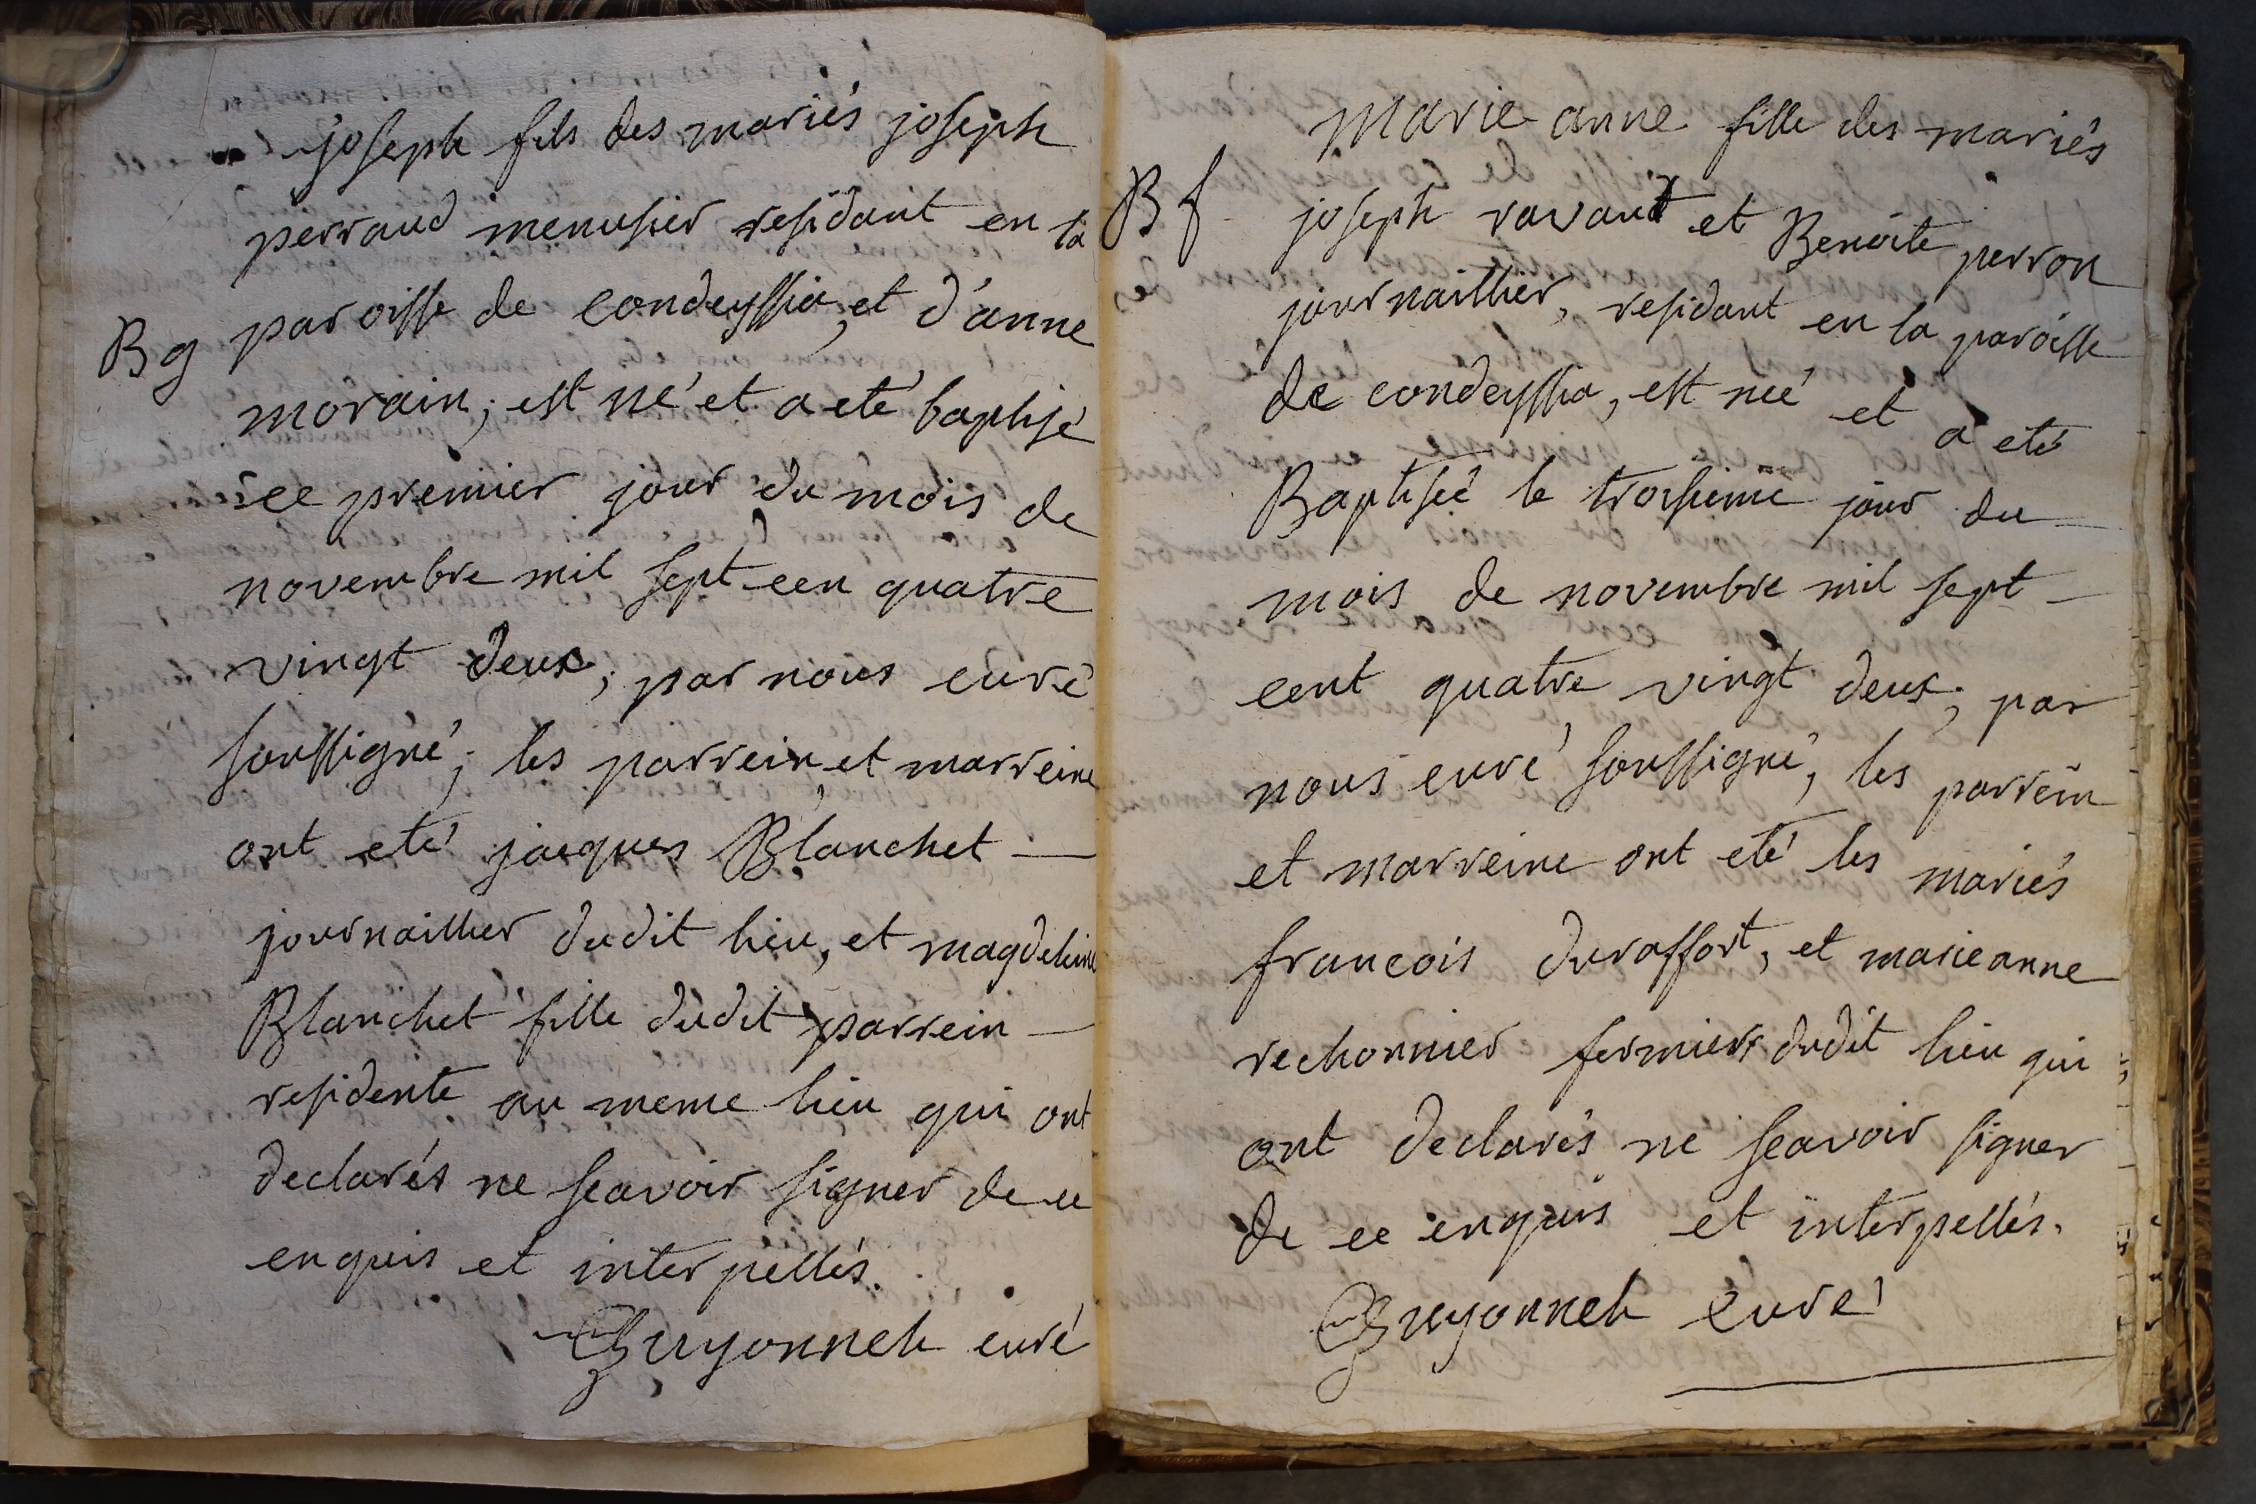 joseph fils des mariés joseph
perraud menusier residant en la
Bg paroisse de condeyssia, et d'anne
morain; est né et a eté baptisé
ce premier jour du mois de
novembre mil sept cen quatre
vingt deux, par nous curé
soussigné; les parrein et marreine
ont eté jacques Blanchet
journaillier dudit lieu, et magdeleine
Blanchet fille dudit parrein
residente au meme lieu qui ont
declarés ne scavoir signer de ce
enquis et interpellés.
Guyonnet curé
Marie anne fille des mariés
Bf joseph ravaut et Benoite perron
journaillier, residant en la paroisse
de condeyssia, est née et a eté
Baptisée le troisieme jour du
mois de novembre mil sept
cent quatre vingt deux; par
nous curé soussigné, les parrein
et marreine ont eté les mariés
francois duraffort, et marieanne
rechonnier fermiers dudit lieu qui
ont declarés ne scavoir signer
de ce enquis et interpellés.
Guyonnet curé